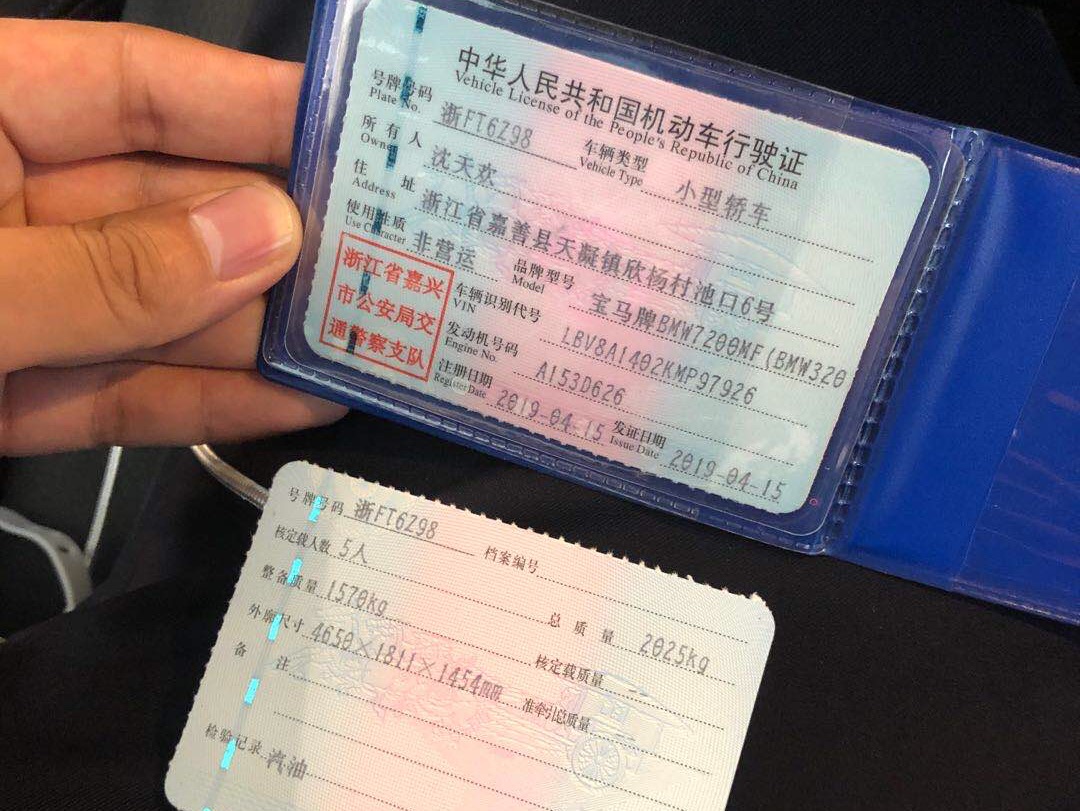 中华人民共和国机动车行驶证
Vehicle License of the People's Republic of China
号牌号码 浙FT6Z98 车辆类型 小型轿车
Plate No. Vehicle Type
所有人 沈天欢
Owner
住址 浙江省嘉善县天凝镇欣杨村池口6号
Address
使用性质 非营运 品牌型号 宝马牌BMW7200MF(BMW320
Use Character Model
浙江省嘉兴
市公安局交
通警察支队
车辆识别代号 LBV8A1402KMP97926
VIN
发动机号码 A153D626
Engine No.
注册日期 2019-04-15 发证日期 2019-04-15
Register Date Issue Date
号牌号码 浙FT6Z98 档案编号
核定载人数 5人 总质量 2025kg
整备质量 1570kg 核定载质量 --
外廓尺寸 4650×1811×1454mm 准牵引总质量
备注
检验记录 汽油